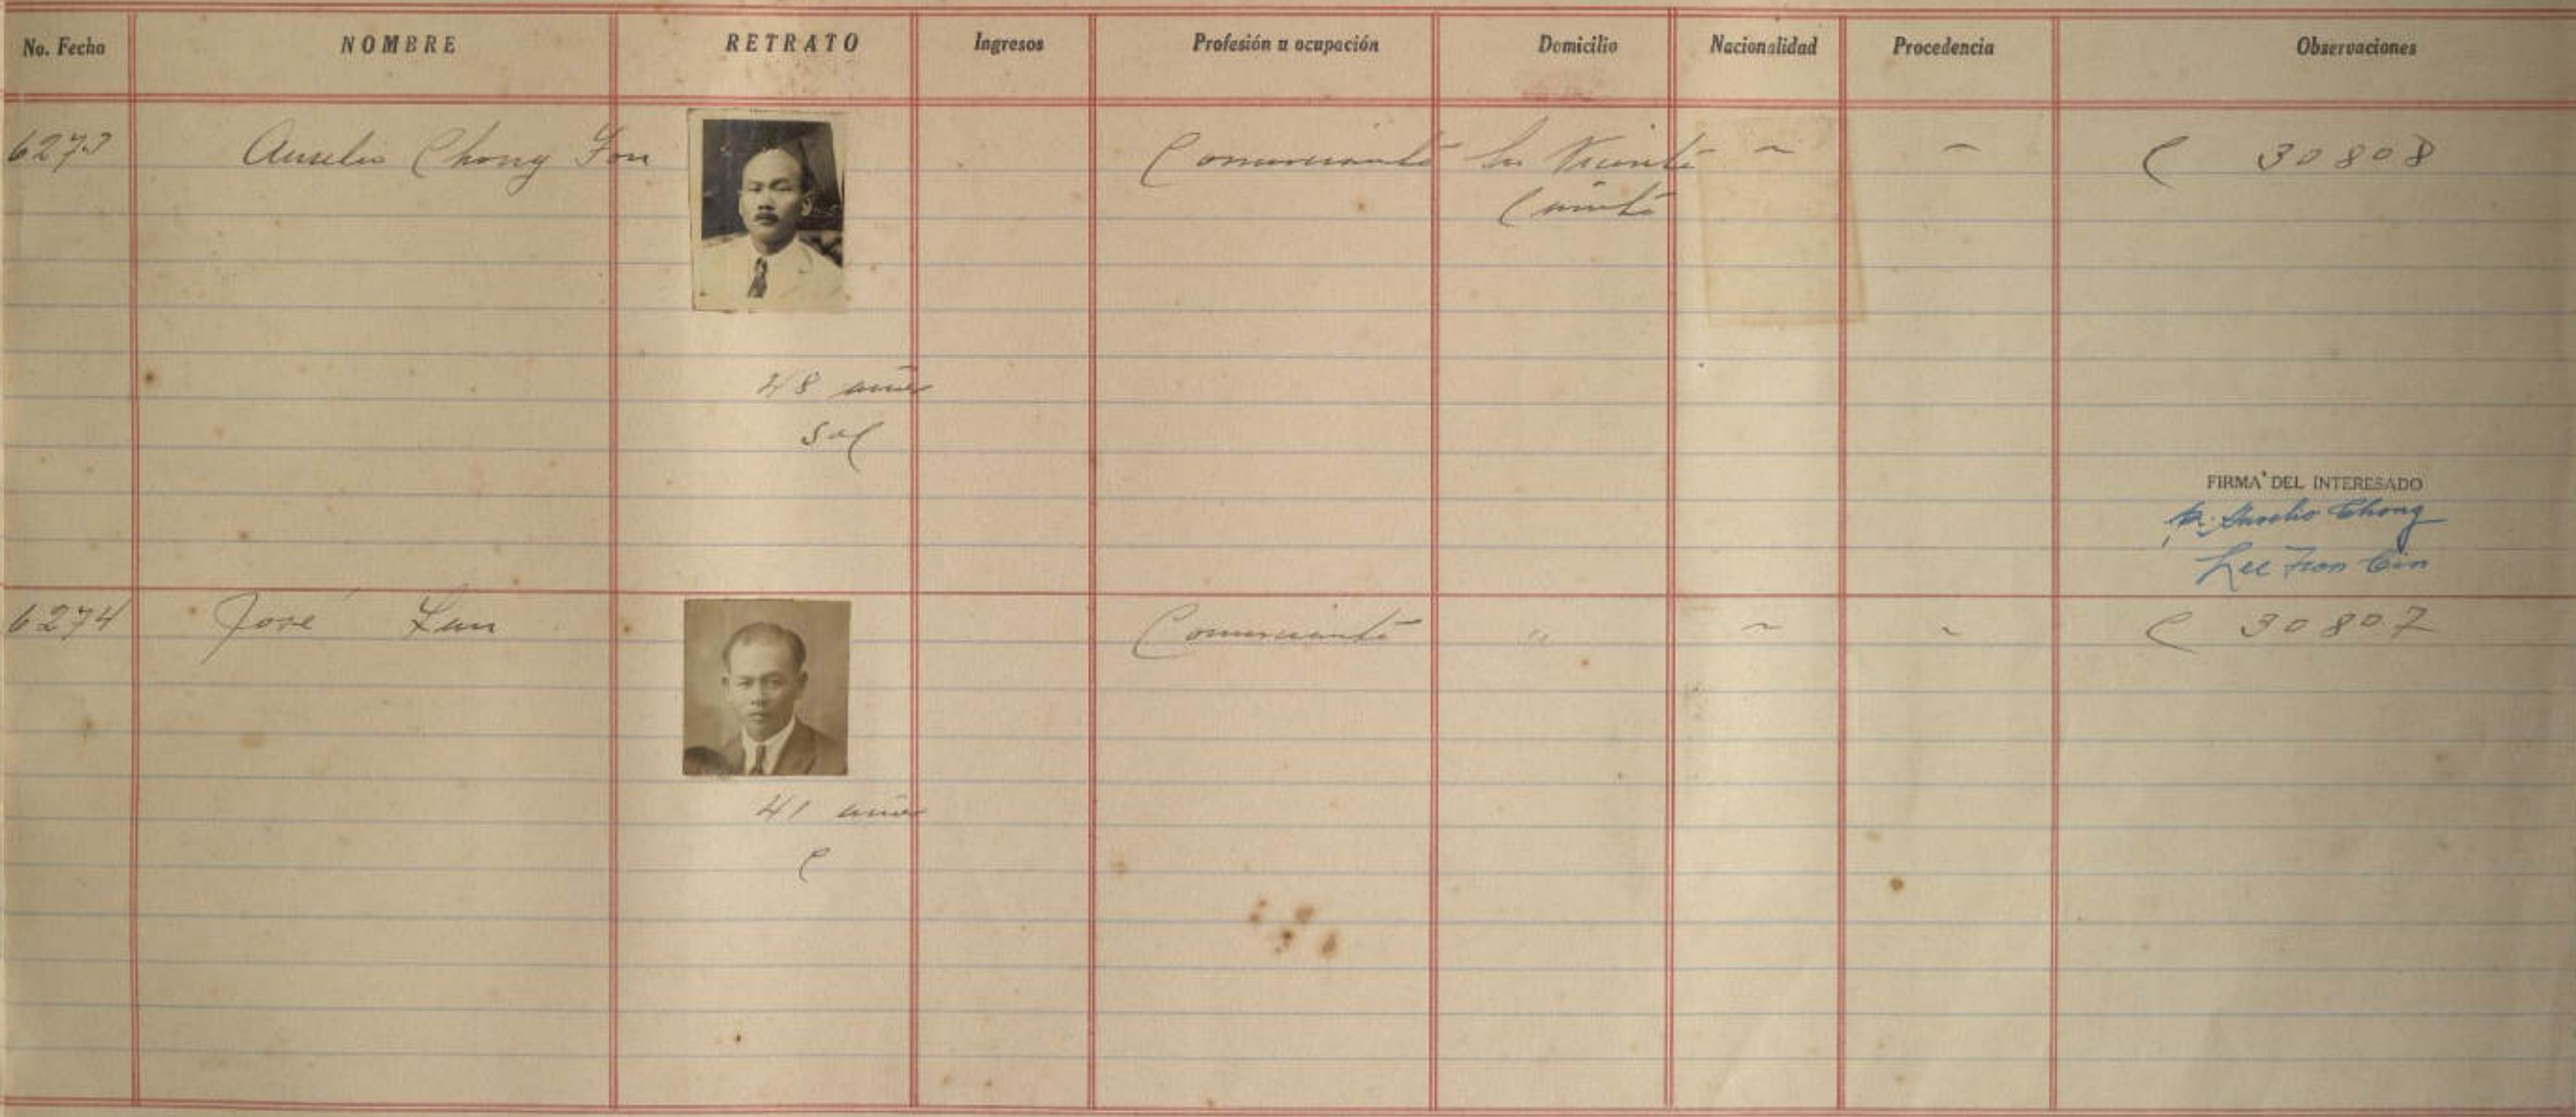 No. Fecha NOMBRE RETRATO Ingresos Profesión u ocupación Domicilio Nacionalidad Procedencia Observaciones
6273 Aurelio Chong Fon Comerciante San Vicente ~ ~ C 30808
Cañete
48 años
Sol
FIRMA DEL INTERESADO
p. Aurelio Chong
Lee Fron Cin
6274 José Lun Comerciante " ~ ~ C 30807
41 años
C